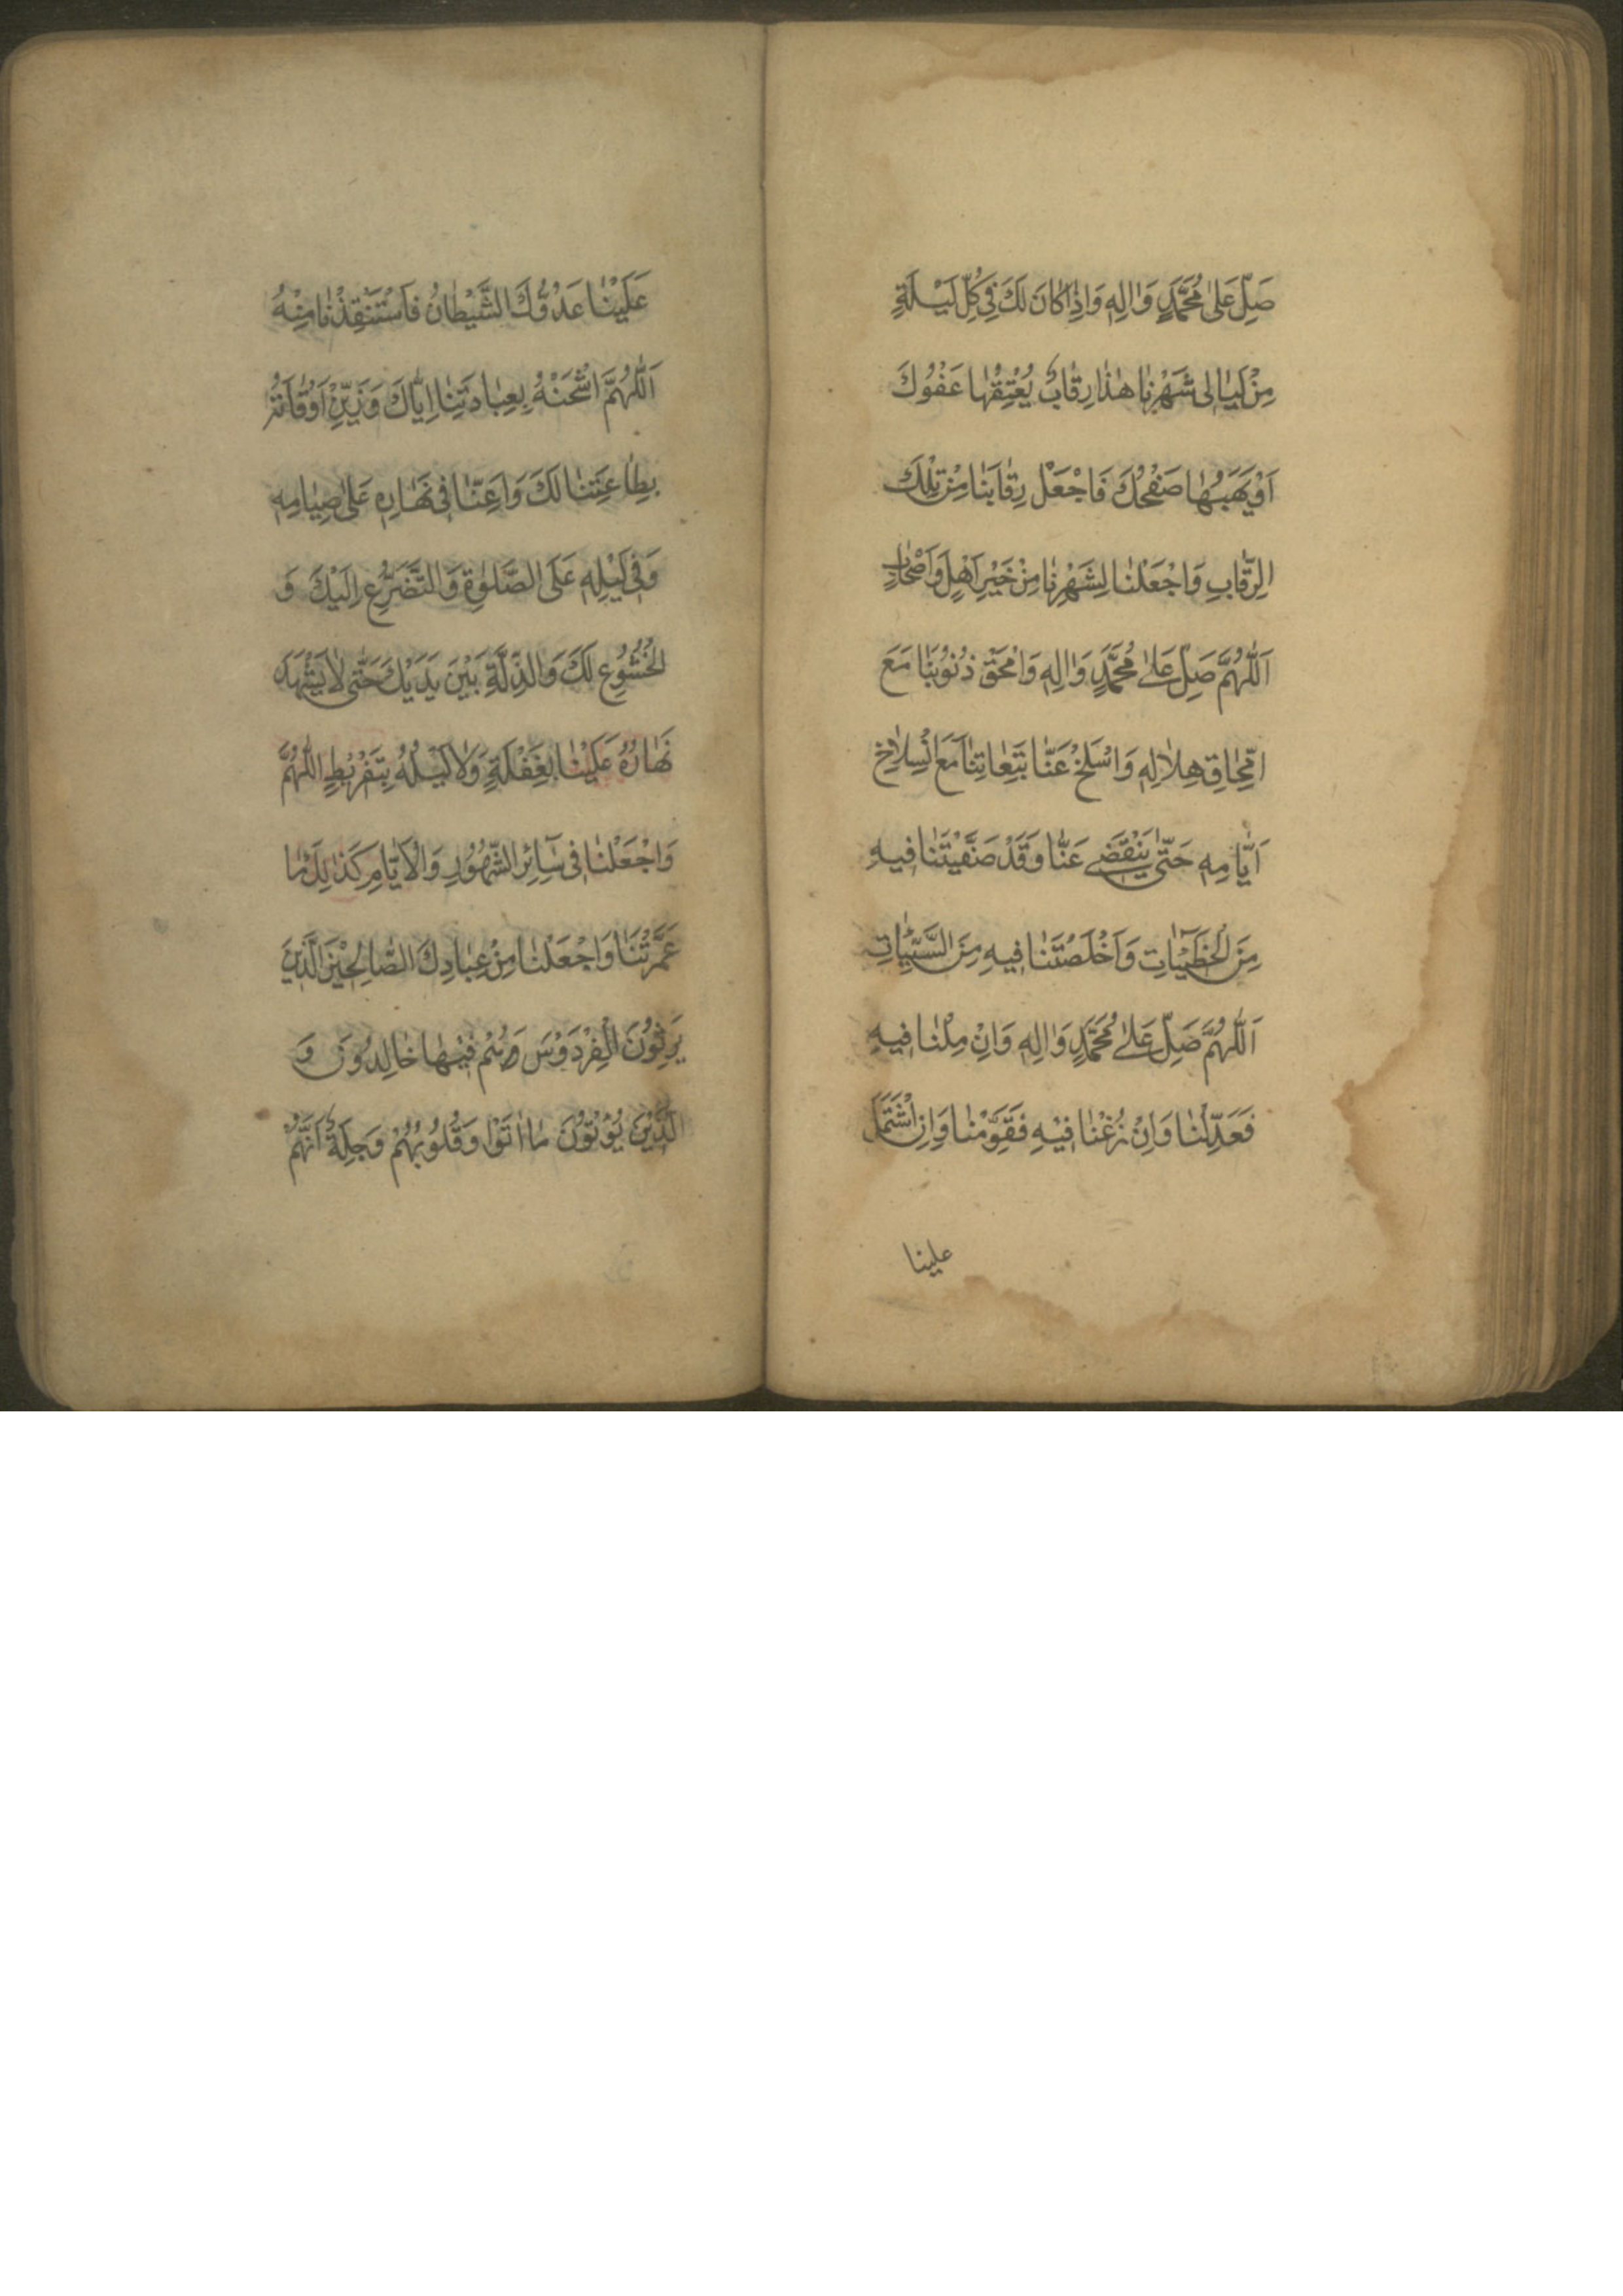 صَلِّ عَلىٰ مُحَمَّدٍ وَاٰلِهِ وَاِذَا كَانَ لَكَ فِي كُلِّ لَيْلَةٍ
مِنْ لَيَالِى شَهْرِنَا هٰذَا رِقَابٌ يُعْتِقُهَا عَفْوُكَ
اَوْ يَهَبُهَا صَفْحُكَ فَاجْعَلْ رِقَابَنَا مِنْ تِلْكَ
الرِّقَابِ وَاجْعَلْنَا لِشَهْرِنَا مِنْ خَيْرِ اَهْلٍ وَاَصْحَابٍ
اَللّٰهُمَّ صَلِّ عَلىٰ مُحَمَّدٍ وَاٰلِهِ وَامْحَقْ ذُنُوبَنَا مَعَ
امِّحَاقِ هِلَالِهِ وَاسْلَخْ عَنَّا تَبِعَاتِنَا مَعَ انْسِلَاخِ
اَيَّامِهِ حَتّىٰ يَنْقَضِي عَنَّا وَقَدْ صَفَّيْتَنَا فِيهِ
مِنَ الْخَطِيئَاتِ وَاَخْلَصْتَنَا فِيهِ مِنَ السَّيِّئَاتِ
اَللّٰهُمَّ صَلِّ عَلىٰ مُحَمَّدٍ وَاٰلِهِ وَاِنْ مِلْنَا فِيهِ
فَعَدِّلْنَا وَاِنْ زُغْنَا فِيْهِ فَقَوِّمْنَا وَاِنِ اشْتَمَلَ
علينا
عَلَيْنَا عَدُوُّكَ الشَّيْطَانُ فَاسْتَنْقِذْنَا مِنْهُ
اَللّٰهُمَّ اشْحَنْهُ بِعِبَادَتِنَا اِيَّاكَ وَزَيِّنْ اَوْقَاتَهُ
بِطَاعَتِنَا لَكَ وَاَعِنَّا فِى نَهَارِهِ عَلىٰ صِيَامِهِ
وَفِى لَيْلِهِ عَلَى الصَّلٰوةِ وَالتَّضَرُّعِ اِلَيْكَ وَ
الْخُشُوعِ لَكَ وَالذِّلَّةِ بَيْنَ يَدَيْكَ حَتّىٰ لَا يَشْهَدَ
نَهَارُهُ عَلَيْنَا بِغَفْلَةٍ وَلَا لَيْلُهُ بِتَفْرِيطٍ اللّٰهُمَّ
وَاجْعَلْنَا فِى سَائِرِ الشُّهُورِ وَالْاَيَّامِ كَذٰلِكَ مَا
عَمَّرْتَنَا وَاجْعَلْنَا مِنْ عِبَادِكَ الصَّالِحِيْنَ الَّذِينَ
يَرِثُوْنَ الْفِرْدَوْسَ هُمْ فِيْهَا خَالِدُونَ وَ
الَّذِيْنَ يُؤْتُوْنَ مَا اٰتَوْا وَقُلُوبُهُمْ وَجِلَةٌ اَنَّهُمْ